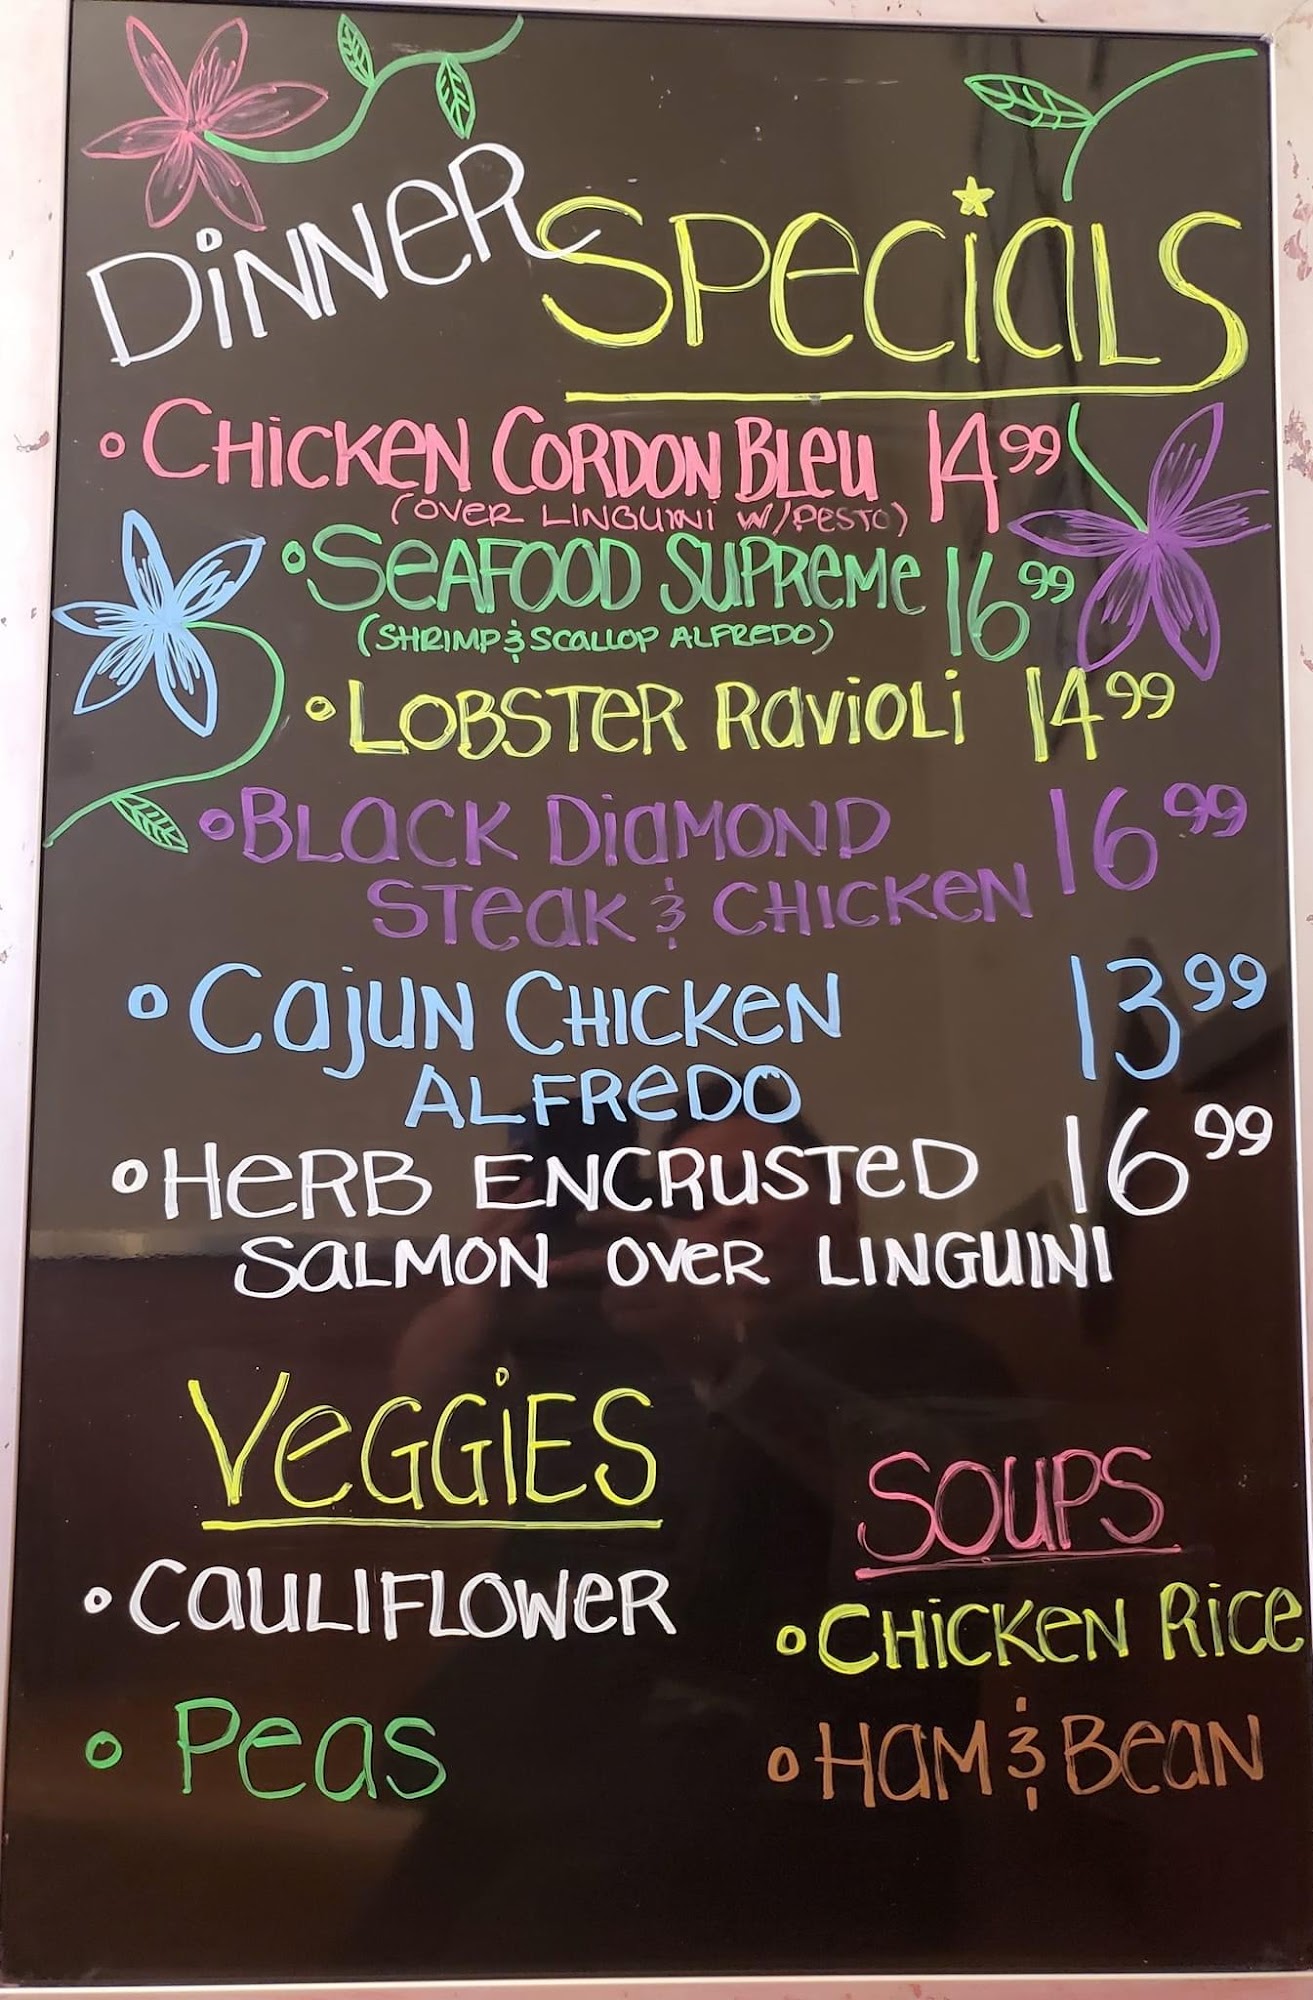 DINNER SPECIALS
CHICKEN CORDON BLEU 14.99
(OVER LINGUINI W/PESTO)
SEAFOOD SUPREME 16.99
(SHRIMP & SCALLOP ALFREDO)
LOBSTER RAVIOLI 14.99
BLACK DIAMOND 16.99
STEAK & CHICKEN
CAJUN CHICKEN 13.99
ALFREDO
HERB ENCRUSTED 16.99
SALMON OVER LINGUINI
VEGGIES
CAULIFLOWER
PEAS
SOUPS
CHICKEN RICE
HAM & BEAN